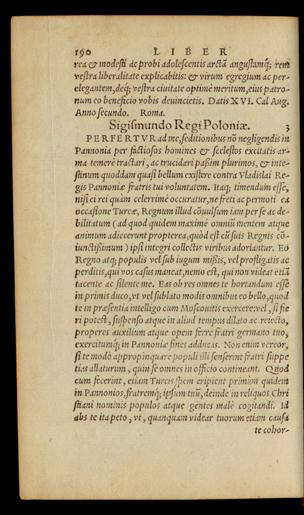 190 LIBER
rea & modesti ac probi adolescentis arctā angustamq́; rem
vestra liberalitate explicabitis: & virum egregium ac per-
elegantem, deq́; vestra ciuitate optime meritum, eius patro-
num eo beneficio vobis deuincietis. Datis XVI. Cal Aug.
Anno secundo. Roma.
Sigismundo Regi Poloniæ. 3
PERFERTVR ad me, seditionibus nō negligendis in
Pannonia per factiosos homines & scelestos excitatis ar-
ma temerè tractari, ac trucidari paßim plurimos, & inte-
stinum quoddam quasi bellum existere contra Vladislai Re-
gis Pannoniæ fratris tui voluntatem. Itaq; timendum esse,
nisi ei rei quàm celerrimè occuratur, ne freti ac permoti ea
occasione Turcæ, Regnum illud cōuulsum iam per se ac de-
bilitatum (ad quod quidem maximè omniū mentem atque
animum adiecerunt propterea, quòd est cū suis Regnis cō-
iunctißimum) ipsi integri collectis viribus adoriantur. Eo
Regno atq; populis vel sub iugum mißis, vel profligatis ac
perditis, qui vos casus maneat, nemo est, qui non videat etiā
tacente ac silente me. Eas ob res omnes te hortandum esse
in primis duco, vt vel sublato modis omnibus eo bello, quod
te in præsentia intelligo cum Moscouitis exercere: vel, si fie
ri potest, suspenso atque in aliud tempus dilato ac reiecto,
properes auxilium atque opem ferre fratri germano tuo,
exercitumq́; in Pannoniæ fines adducas. Non enim vereor,
si te modò appropinquare populi illi senserint fratri suppe
tias allaturum, quin se omnes in officio contineant. Quod
cum fecerint, etiam Turcis spem eripient primùm quidem
in Pannonios, fratremq́; ipsum tuū, deinde in reliquos Chri
stiani nominis populos atque gentes malè cogitandi. Id
abs te ita peto, vt, quanquam videar tuorum etiam causa
te cohor-